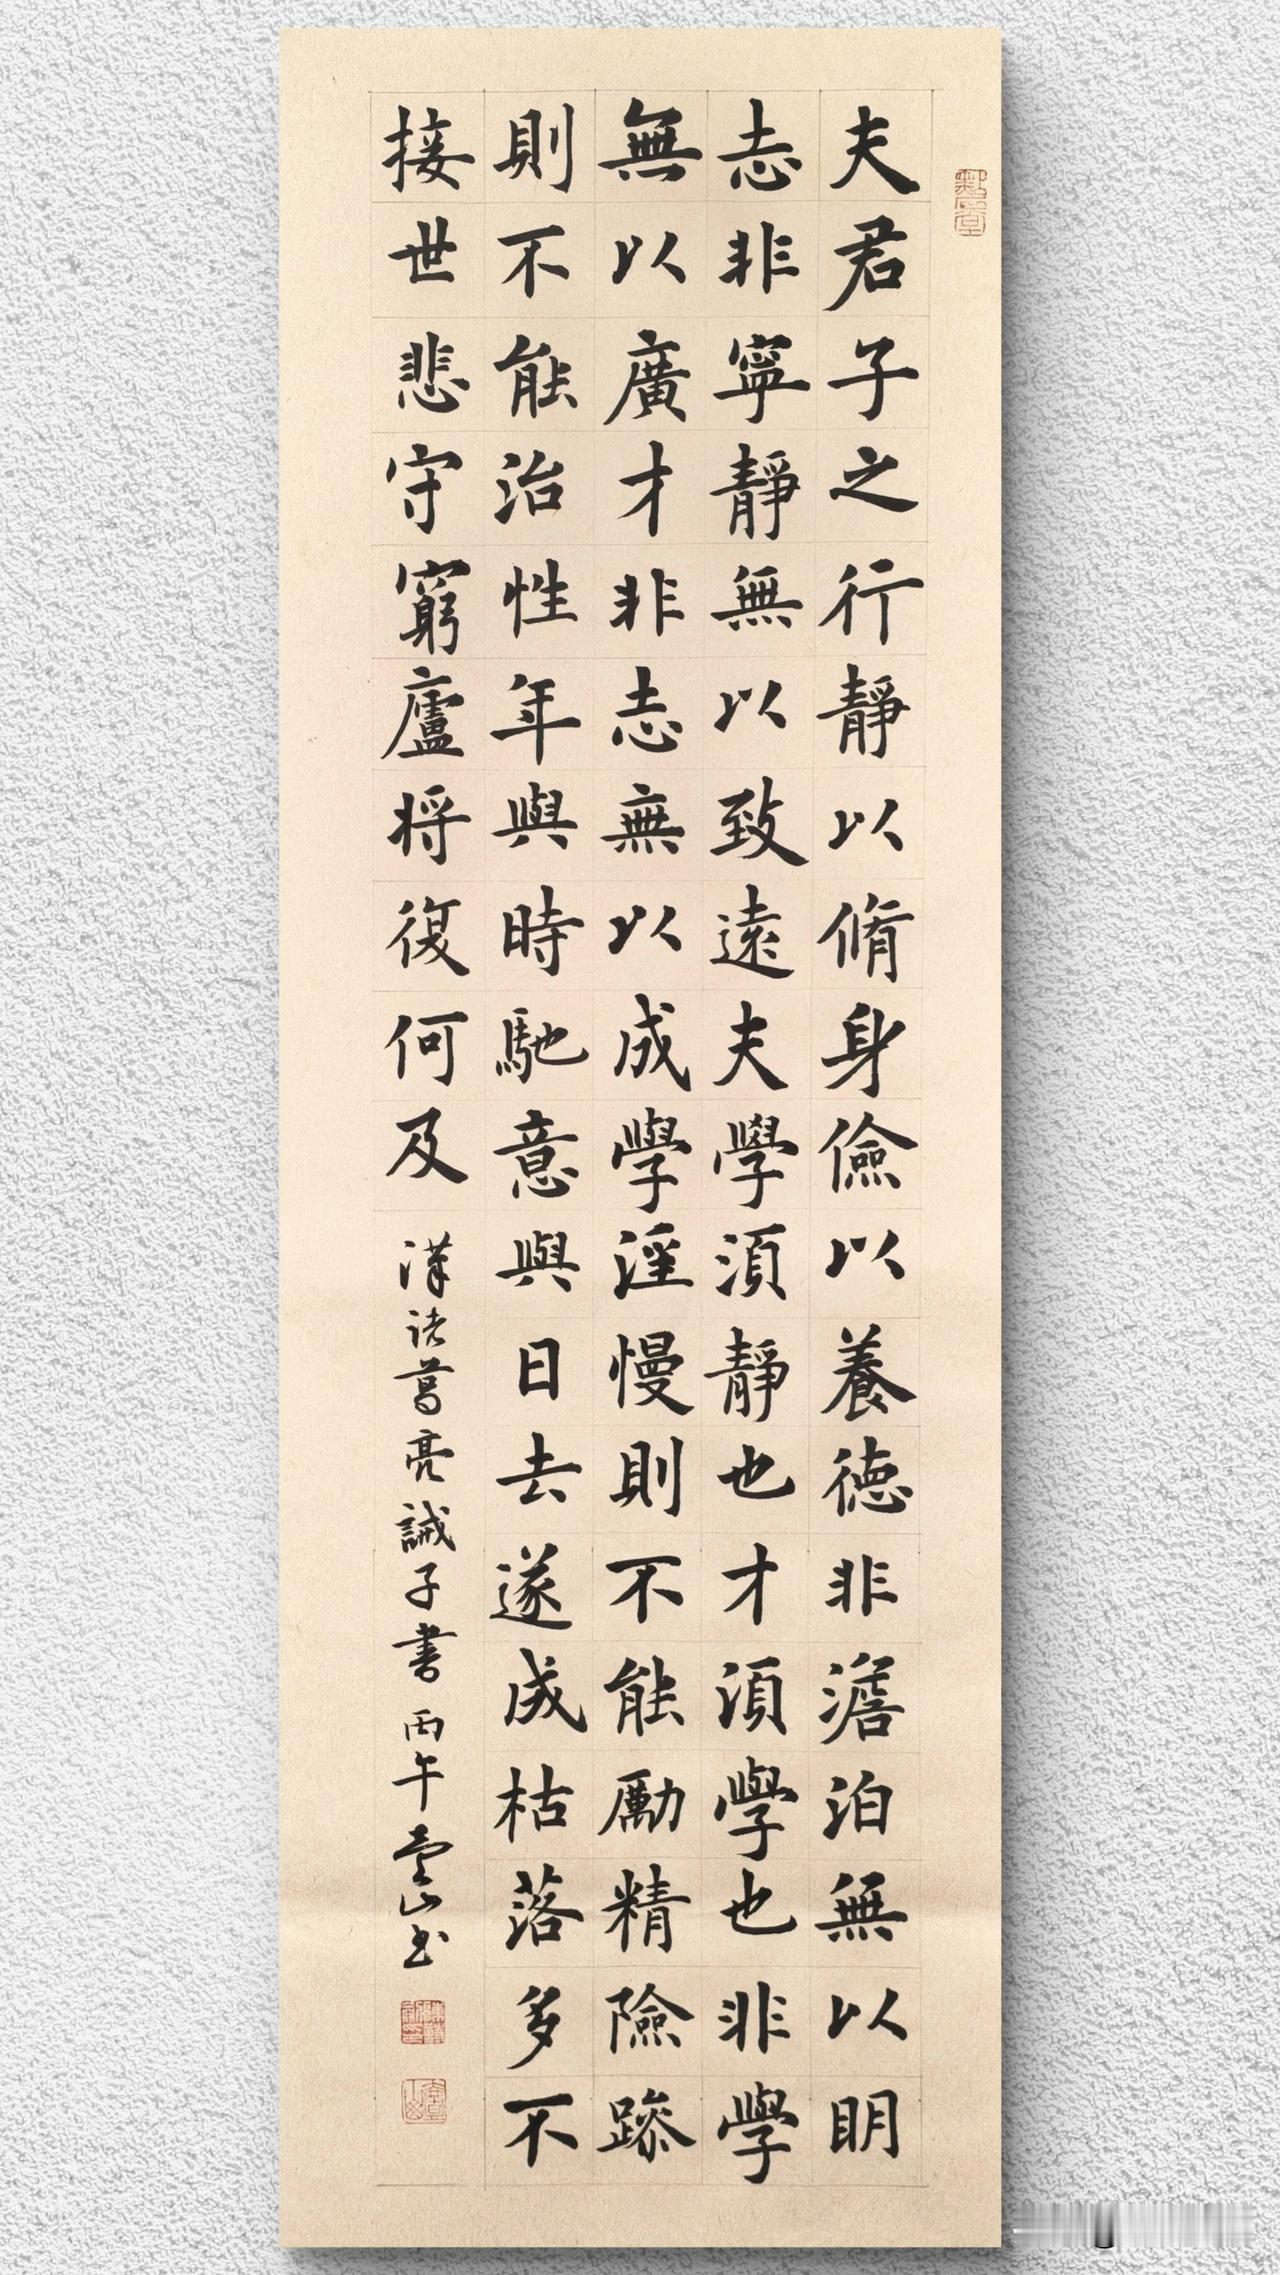 夫君子之行靜以脩身儉以養德非澹泊無以明
志非寧靜無以致遠夫學湏靜也才湏學也非學
無以廣才非志無以成學淫慢則不能勵精險躁
則不能治性年與時馳意與日去遂成枯落多不
接世悲守窮廬将復何及
漢諸葛亮誡子書 丙午雲山书